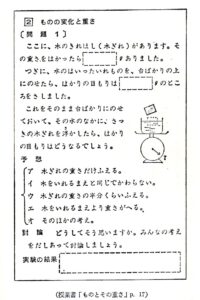 2 ものの変化と重さ
〔問題 1〕
ここに、水のきれはし(木ぎれ)があります。そ
の重さをはかったら　　　gありました。
つぎに、水のはいったいれものを、台ばかりの上
にのせたら、はかりの目もりは　　　gのとこ
ろをさしました。
これをそのまま台ばかりにのせ
ておいて、その水のなかに、さっ
きの木ぎれを浮かしたら、はか
りの目もりはどうなるでしょう。
予 想
ア 木ぎれの重さだけふえる。
イ 木をいれるまえと同じでかわらない。
ウ 木ぎれの重さの半分くらいふえる。
エ 木をいれるまえより重さがへる。
オ そのほかの考え。
討 論 どうしてそう思いますか。みんなの考え
をだしあって討論しましょう。
実験の結果
(授業書『ものとその重さ』p. 17)